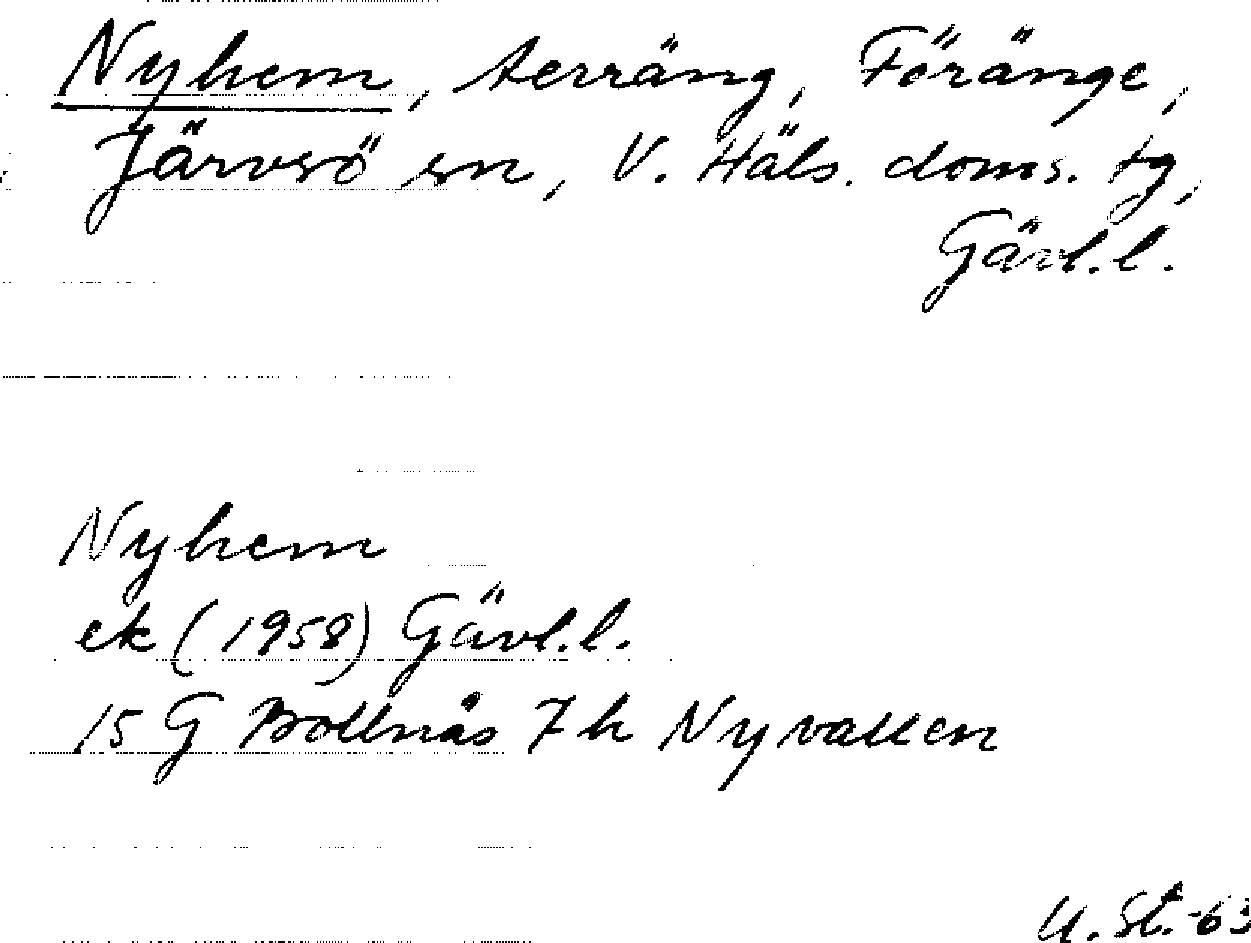 Nyhem, terräng, Föränge,
Järvsö sn, V. Häls. doms. tg,
Gävl.l.
Nyhem
ek (1958) Gävl.l.
15 G Bollnäs 7h Nyvallen
U.St.-63